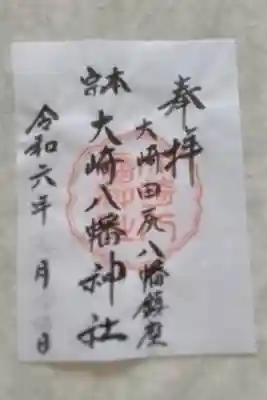 奉拝
大崎田尻八幡鎮座
宗本
大崎八幡神社
令和六年 月 日